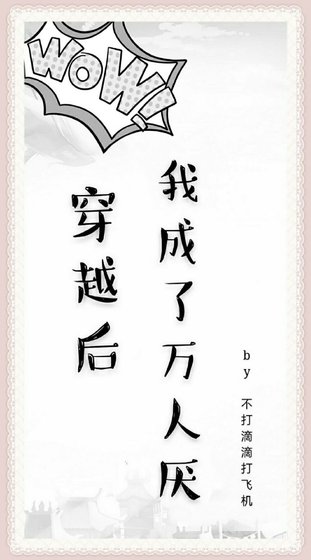 WOW!
穿越后
我成了万人厌
by 不打滴滴打飞机